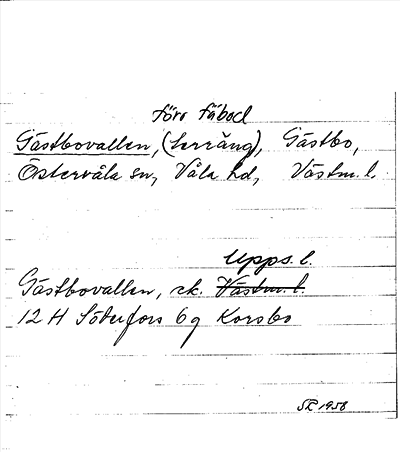 förr fäbod
Gästbovallen, (terräng), Gästbo,
Östervåla sn, Våla hd, Västm. l.
Upps. l.
Gästbovallen, ek. Västm. l.
12 H Söderfors 6g Korsbo
SR 1958